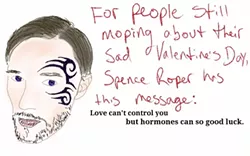 For people still
moping about their
Sad Valentine's Day,
Spence Roper has
this message:
Love can't control you
but hormones can so good luck.